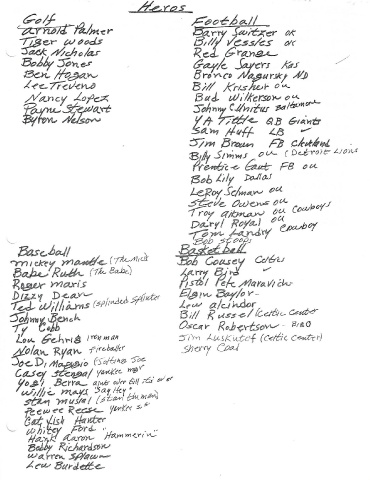 Heros
Golf
Arnold Palmer
Tiger Woods
Jack Nicholas
Bobby Jones
Ben Hagan
Lee Treveno
Nancy Lopez
Payne Stewart
Byron Nelson
Football
Barry Switzer OK
Billy Vessels OK
Red Grange
Gayle Sayers Kas
Bronco Nagursky ND
Bill Krisher OU
Bud Wilkerson OU
Johnny Unitus Baltimore
YA Tittle QB Giants
Sam Huff LB
Jim Brown FB Cleveland
Billy Simms OU (Detroit Lions
Prentice Gaut FB OU
Bob Lily Dallas
LeRoy Selman OU
Steve Owens OU
Troy Aikman OU Cowboys
Daryl Royal OU
Tom Landry Cowboy
Bob Stoops
Baseball
Mickey Mantle (The Mick
Babe Ruth (The Babe)
Roger Maris
Dizzy Dean
Ted Williams (Splinded Splinter
Johnny Bench
Ty Cobb
Lou Gehrig ironman
Nolan Ryan fireballer
Joe DiMaggio (Jolting Joe
Casey Stengal yankee mgr
Yogi Berra aint over till its over
Willie Mays "Say Hey"
Stan Musial (Stan the man)
Peewee Reese yankee
Cat fish Hunter
Whitey Ford
Hank Aaron Hammerin"
Bobby Richardson
Warren Sphawn
Lew Burdette
Basketball
Bob Cousey Celtics
Larry Bird
Pistol Pete Maravich
Elgin Baylor
Lou Alcindor
Bill Russel (Celtic Center
Oscar Robertson
Jim Luskutof (Celtic Center)
Sherry Coal